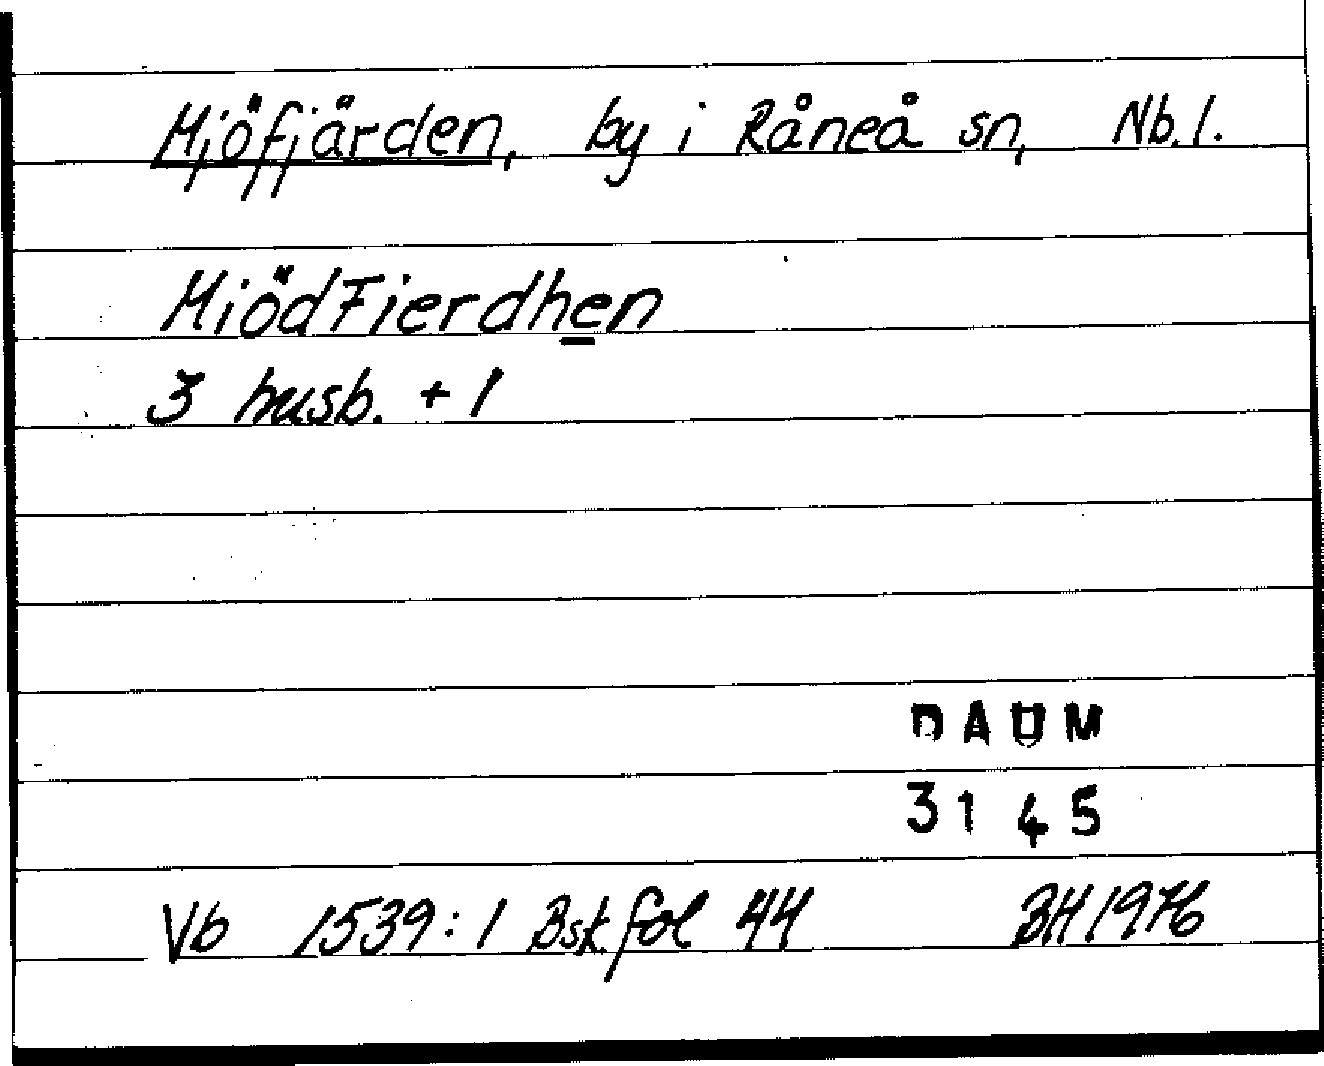 Mjöfjärden, by i Råneå sn, Nb. l.
MiödFierdhen
3 husb. + 1
DAUM
3145
Vb 1539:1 Bsk fol 44 BH 1976